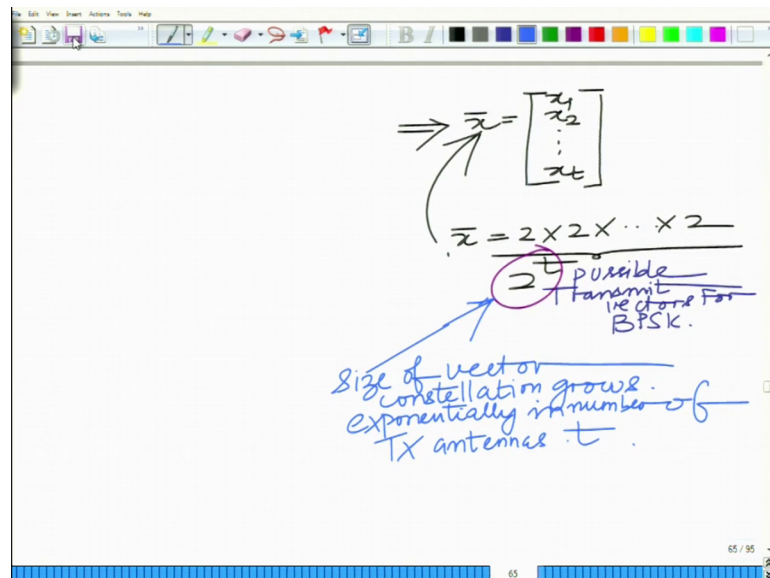 File Edit View Insert Actions Tools Help
B I
⟹ x̄ = [x1
x2
⋮
xt]
x̄ = 2 × 2 × ... × 2
2^t possible
Transmit
vectors For
BPSK.
Size of vector
constellation grows.
exponentially in number of
TX antennas t.
65 / 95
65